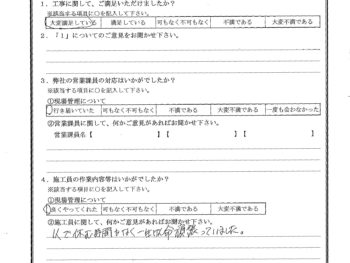 1．工事に関して、ご満足いただけましたか？
※該当する項目に○を記入して下さい。
大変満足している 満足している 可もなく不可もなく 不満である 大変不満である
2．「1」についてのご意見をお聞かせ下さい。
3．弊社の営業課員の対応はいかがでしたか？
※該当する項目に○を記入して下さい。
①現場管理について
行き届いていた 可もなく不可もなく 不満である 大変不満である 一度も会わなかった
②営業課員に関して、何かご意見があればお聞かせ下さい。
営業課員名【 】【 】【 】
4．施工員の作業内容等はいかがでしたか？
※該当する項目に○を記入して下さい。
①現場管理について
良くやってくれた 可もなく不可もなく 不満である 大変不満である
②施工員に関して、何かご意見があればお聞かせ下さい。
1人で休む時間もなく一生懸命頑張っていました。